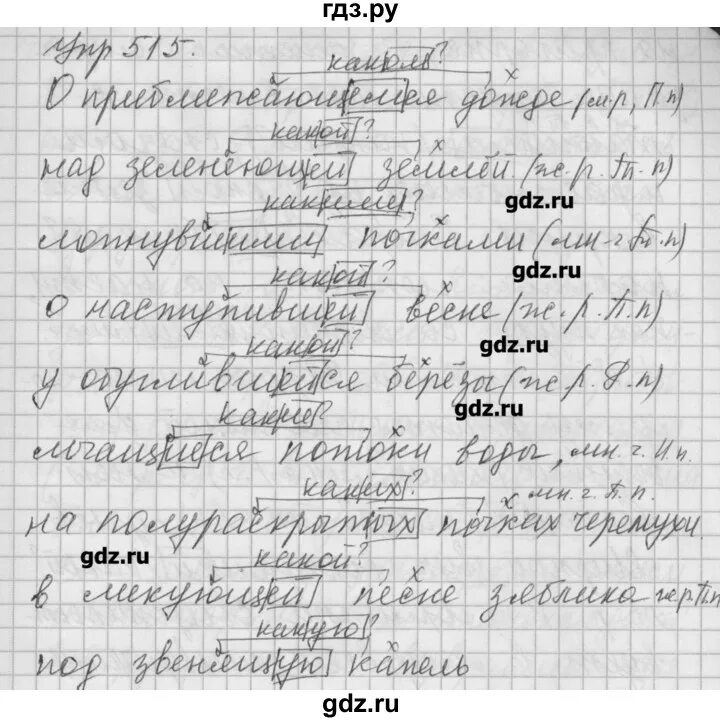 гдз.ру
Упр 515.
каком?
О приближающемся дожде (м.р, П.п)
какой?
над зеленеющей землей (ж.р. Тп.п)
gdz.ru
какими?
лопнувшими почками (мн.ч Тв.п)
gdz.ru
какой?
о наступившей весне (ж.р. П.п)
gdz.ru
какой?
у обуглившейся берёзы (ж.р. Р.п)
gdz.ru
какие?
мчащиеся потоки воды, мн.ч. И.п.
каких? мн.ч. П.п.
на полураскрытых почках черемухи.
gdz.ru
какой?
gdz.ru
в ликующей песне зяблика
какую?
под звенящую капель
gdz.ru